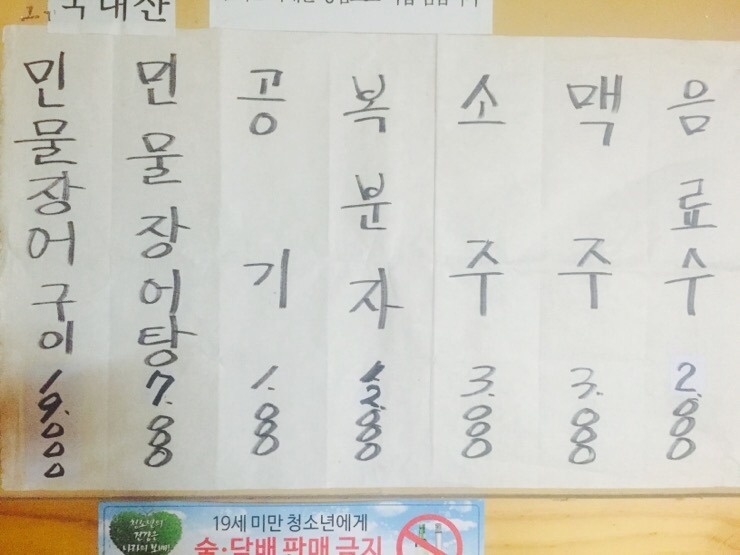 국내산
민물장어구이 19.000
민물장어탕 7.000
공기 1.000
복분자 12.000
소주 3.000
맥주 3.000
음료수 2.000
청소년의
건강은
나라의 보배!
19세 미만 청소년에게
술·담배 판매 금지